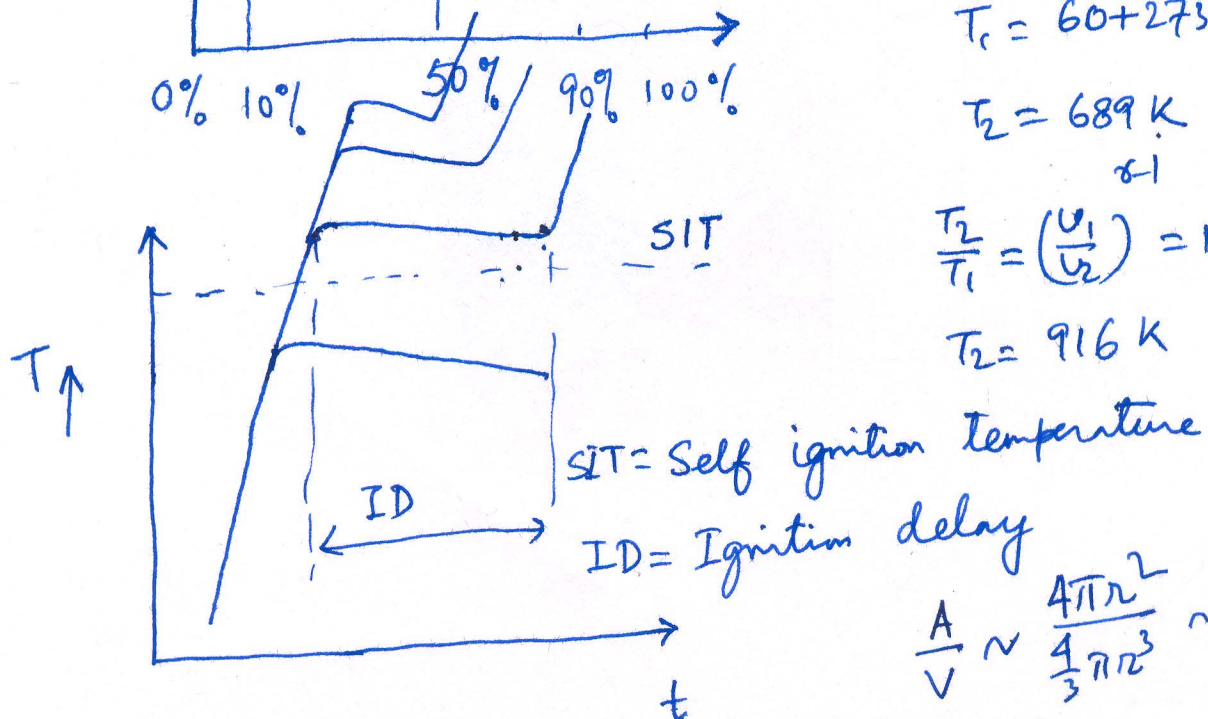 0% 10% 50% 90% 100%
T₁ = 60+273
T₂ = 689 K
T₂/T₁ = (V₁/V₂)^(γ-1) =
T₂ = 916 K
SIT
T ↑
ID
SIT = Self ignition temperature
ID = Ignition delay
A/V ~ 4πr²/(4/3 πr³) ~
t